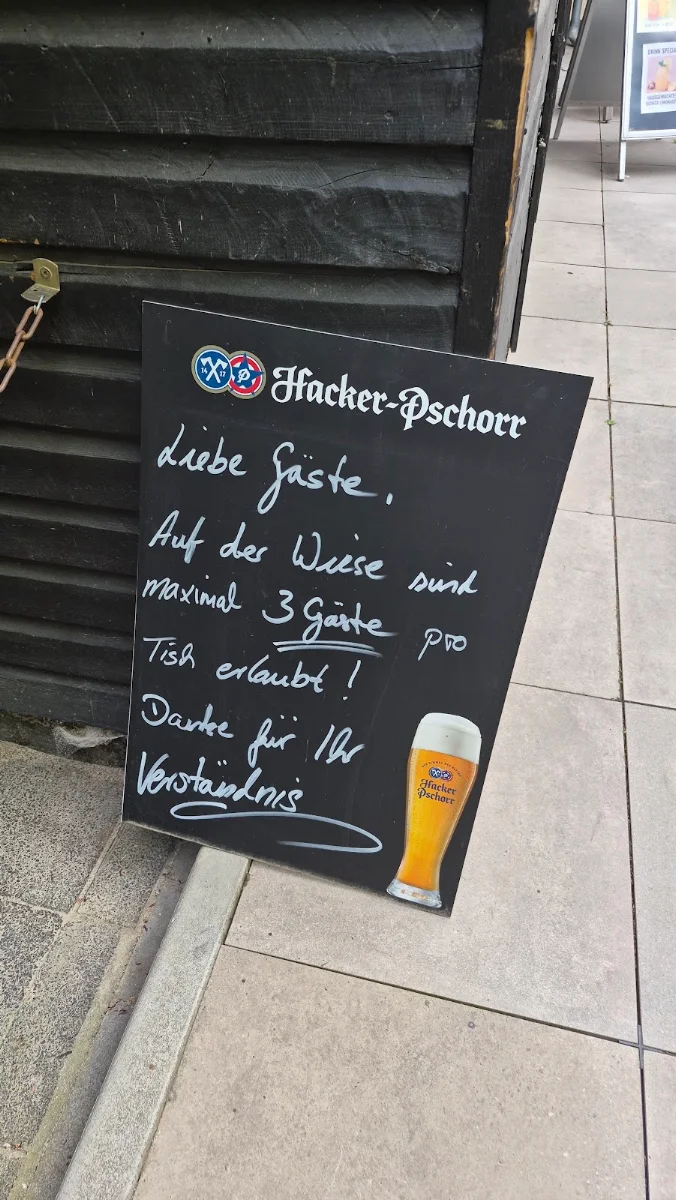 Hacker-Pschorr
Liebe Gäste,
Auf der Wiese sind
maximal 3 Gäste pro
Tisch erlaubt!
Danke für Ihr
Verständnis
Hacker
Pschorr